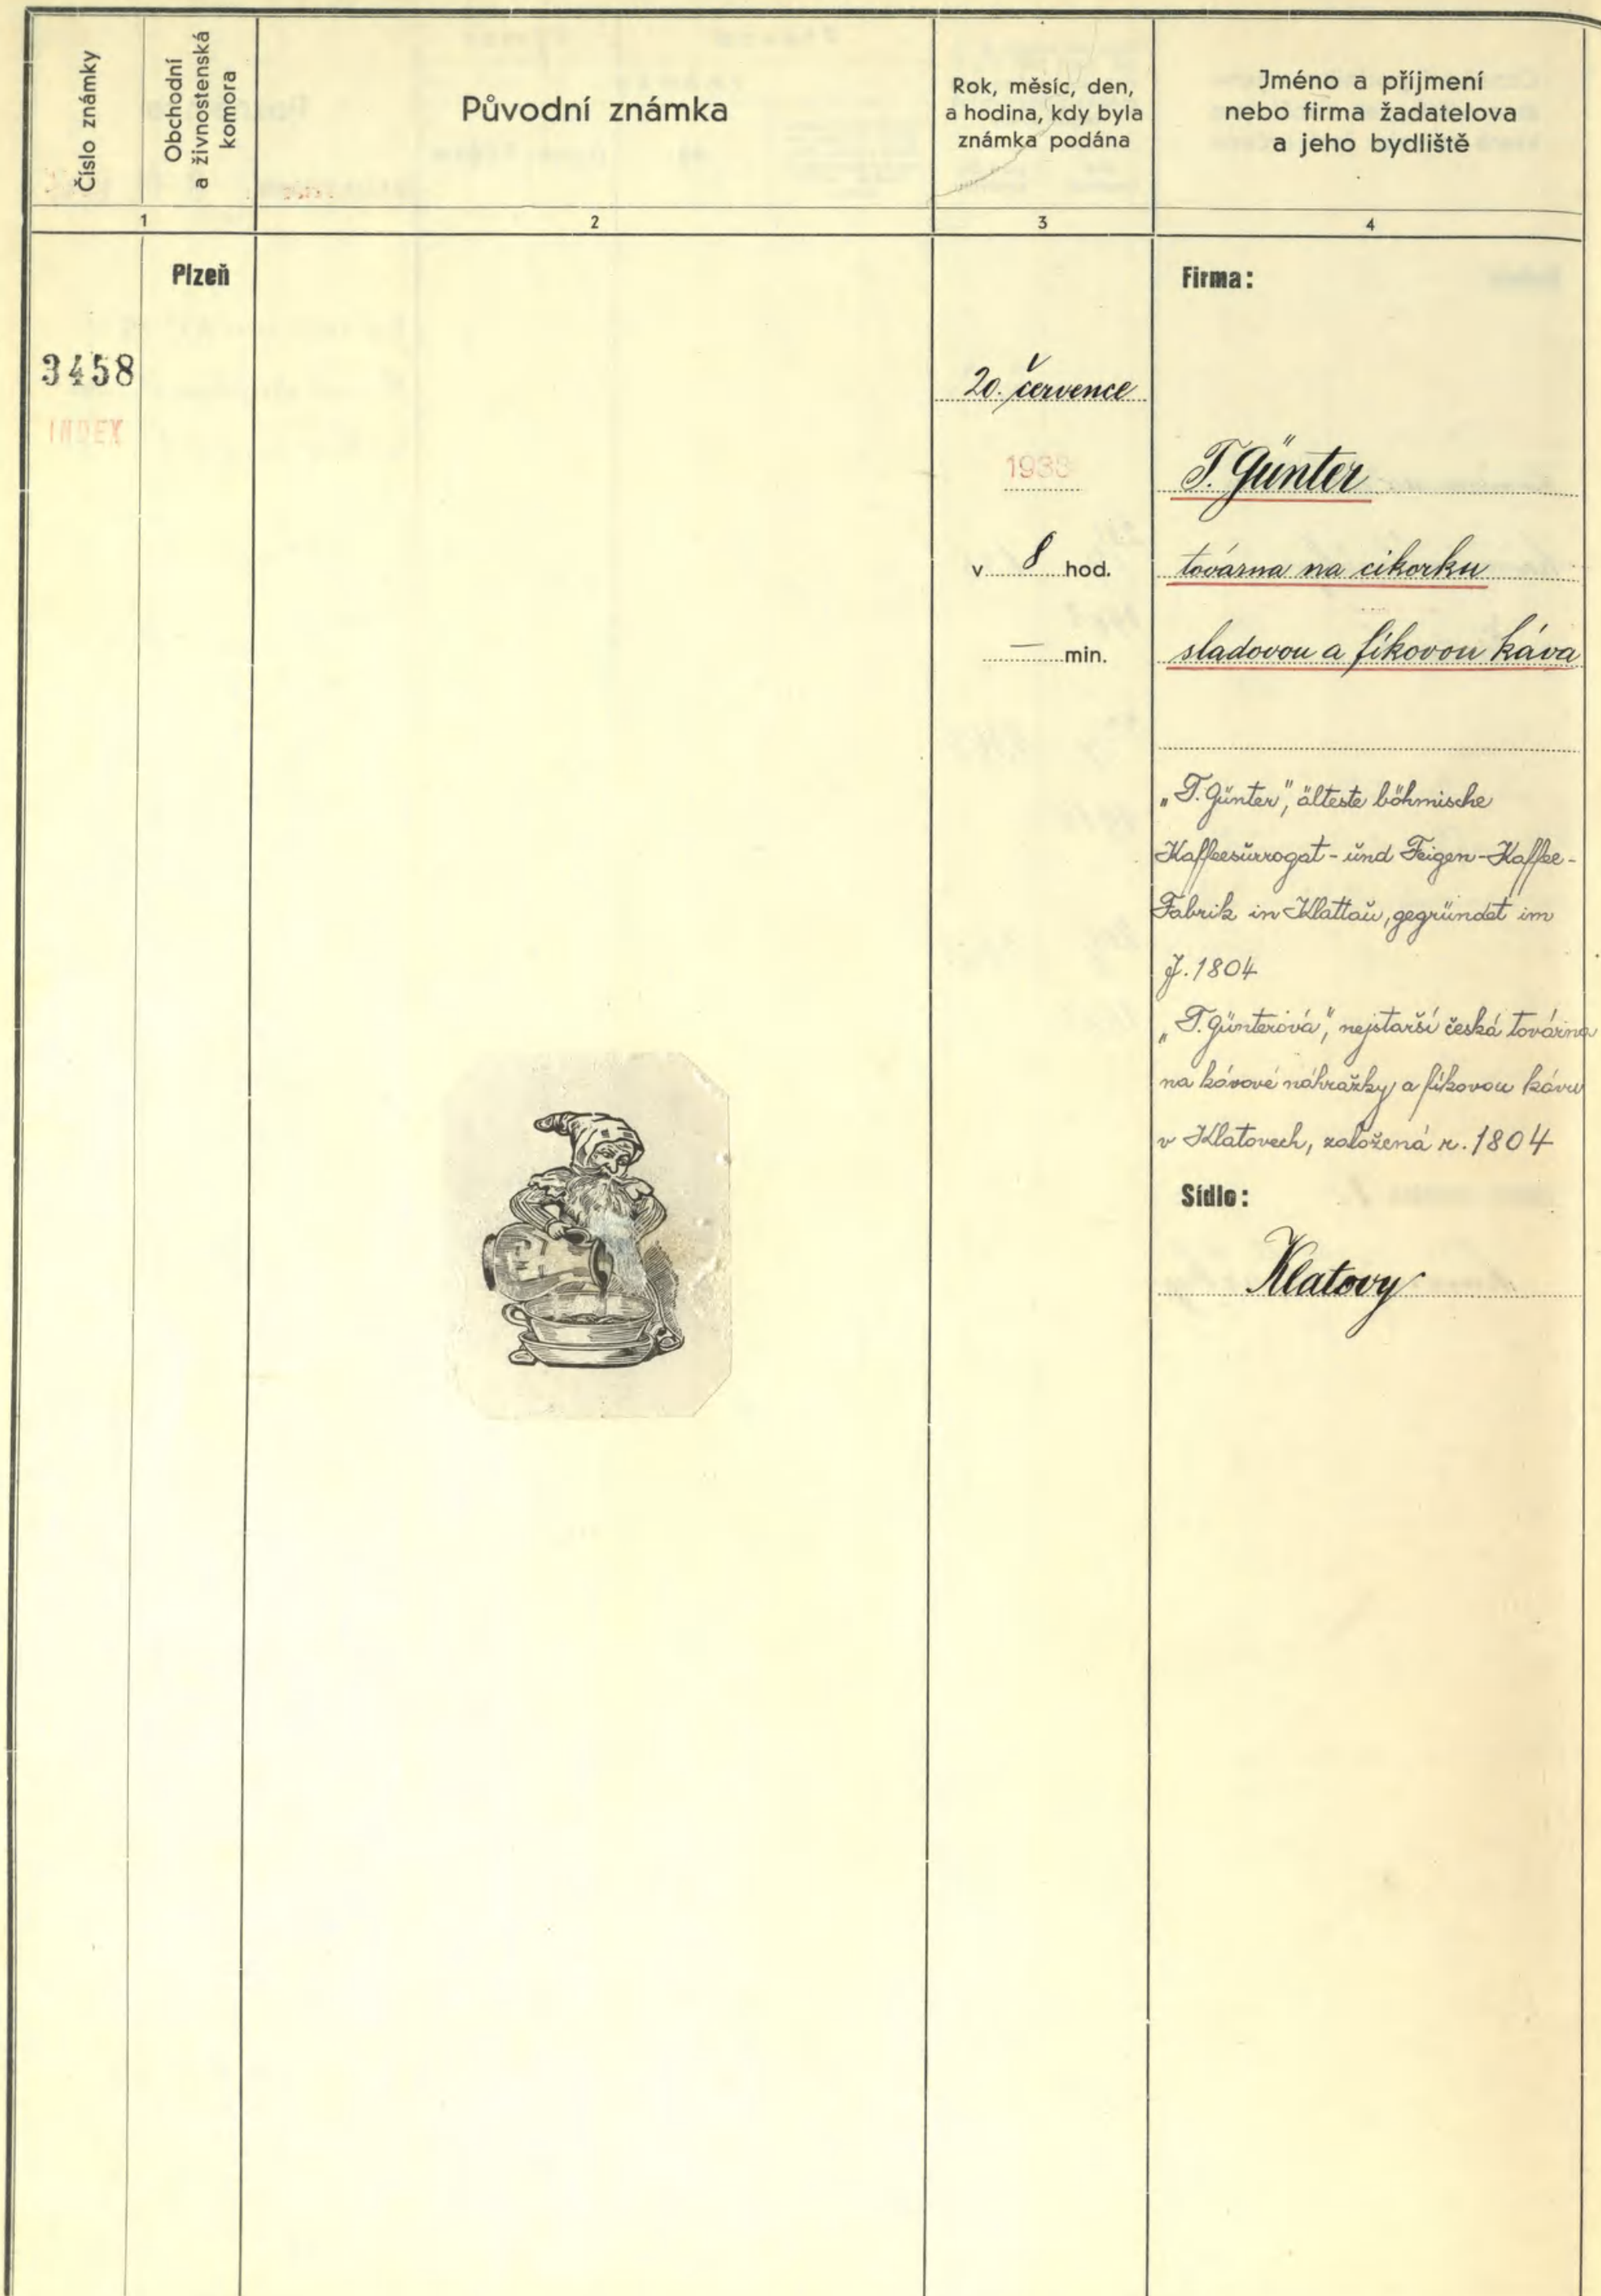 Číslo známky
Obchodní
a živnostenská
komora
Původní známka
Rok, měsíc, den,
a hodina, kdy byla
známka podána
Jméno a příjmení
nebo firma žadatelova
a jeho bydliště
1
2
3
4
Plzeň
3458
INDEX
20. července
1938
v 8 hod.
— min.
Firma:
T. Günter
továrna na cikorku
sladovou a fíkovou káva
„T. Günter", älteste böhmische
Kaffeesurrogat- und Feigen-Kaffee-
Fabrik in Klattau, gegründet im
J. 1804
„T. Günterová", nejstarší česká továrna
na kávové náhražky a fíkovou kávu
v Klatovech, založená r. 1804
Sídlo:
Klatovy